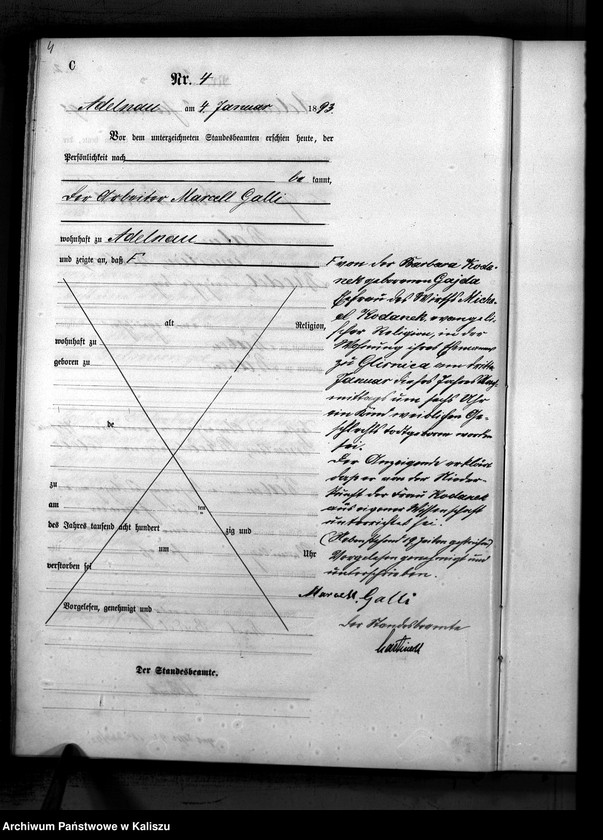 4
C
Nr. 4
Adelnau am 4. Januar 1893.
Vor dem unterzeichneten Standesbeamten erschien heute, der
Persönlichkeit nach
be kannt,
der Arbeiter Marcell Galli
wohnhaft zu Adelnau
und zeigte an, daß F
alt Religion,
wohnhaft zu
geboren zu
de
zu
am ten
des Jahres tausend acht hundert zig und
um Uhr
verstorben sei
Vorgelesen, genehmigt und
Der Standesbeamte.
F von der Barbara Koda-
nek geborenen Gajda
Ehefrau des Wirths Micha-
el Kodanek, evangeli-
scher Religion, in der
Wohnung ihres Ehemannes
zu Glisnica am dritten
Januar dieses Jahres Nach-
mittags um sechs Uhr
ein Kind weiblichen Ge-
schlechts todtgeboren worden
sei.
Der Anzeigende erklärt
daß er von der Nieder-
kunft der Frau Kodanek
aus eigener Wissenschaft
unterrichtet sei.
(Nebenstehend 19 Zeilen gestrichen)
Vorgelesen genehmigt und
unterschrieben.
Marcell Galli
Der Standesbeamte
Archiwum Państwowe w Kaliszu